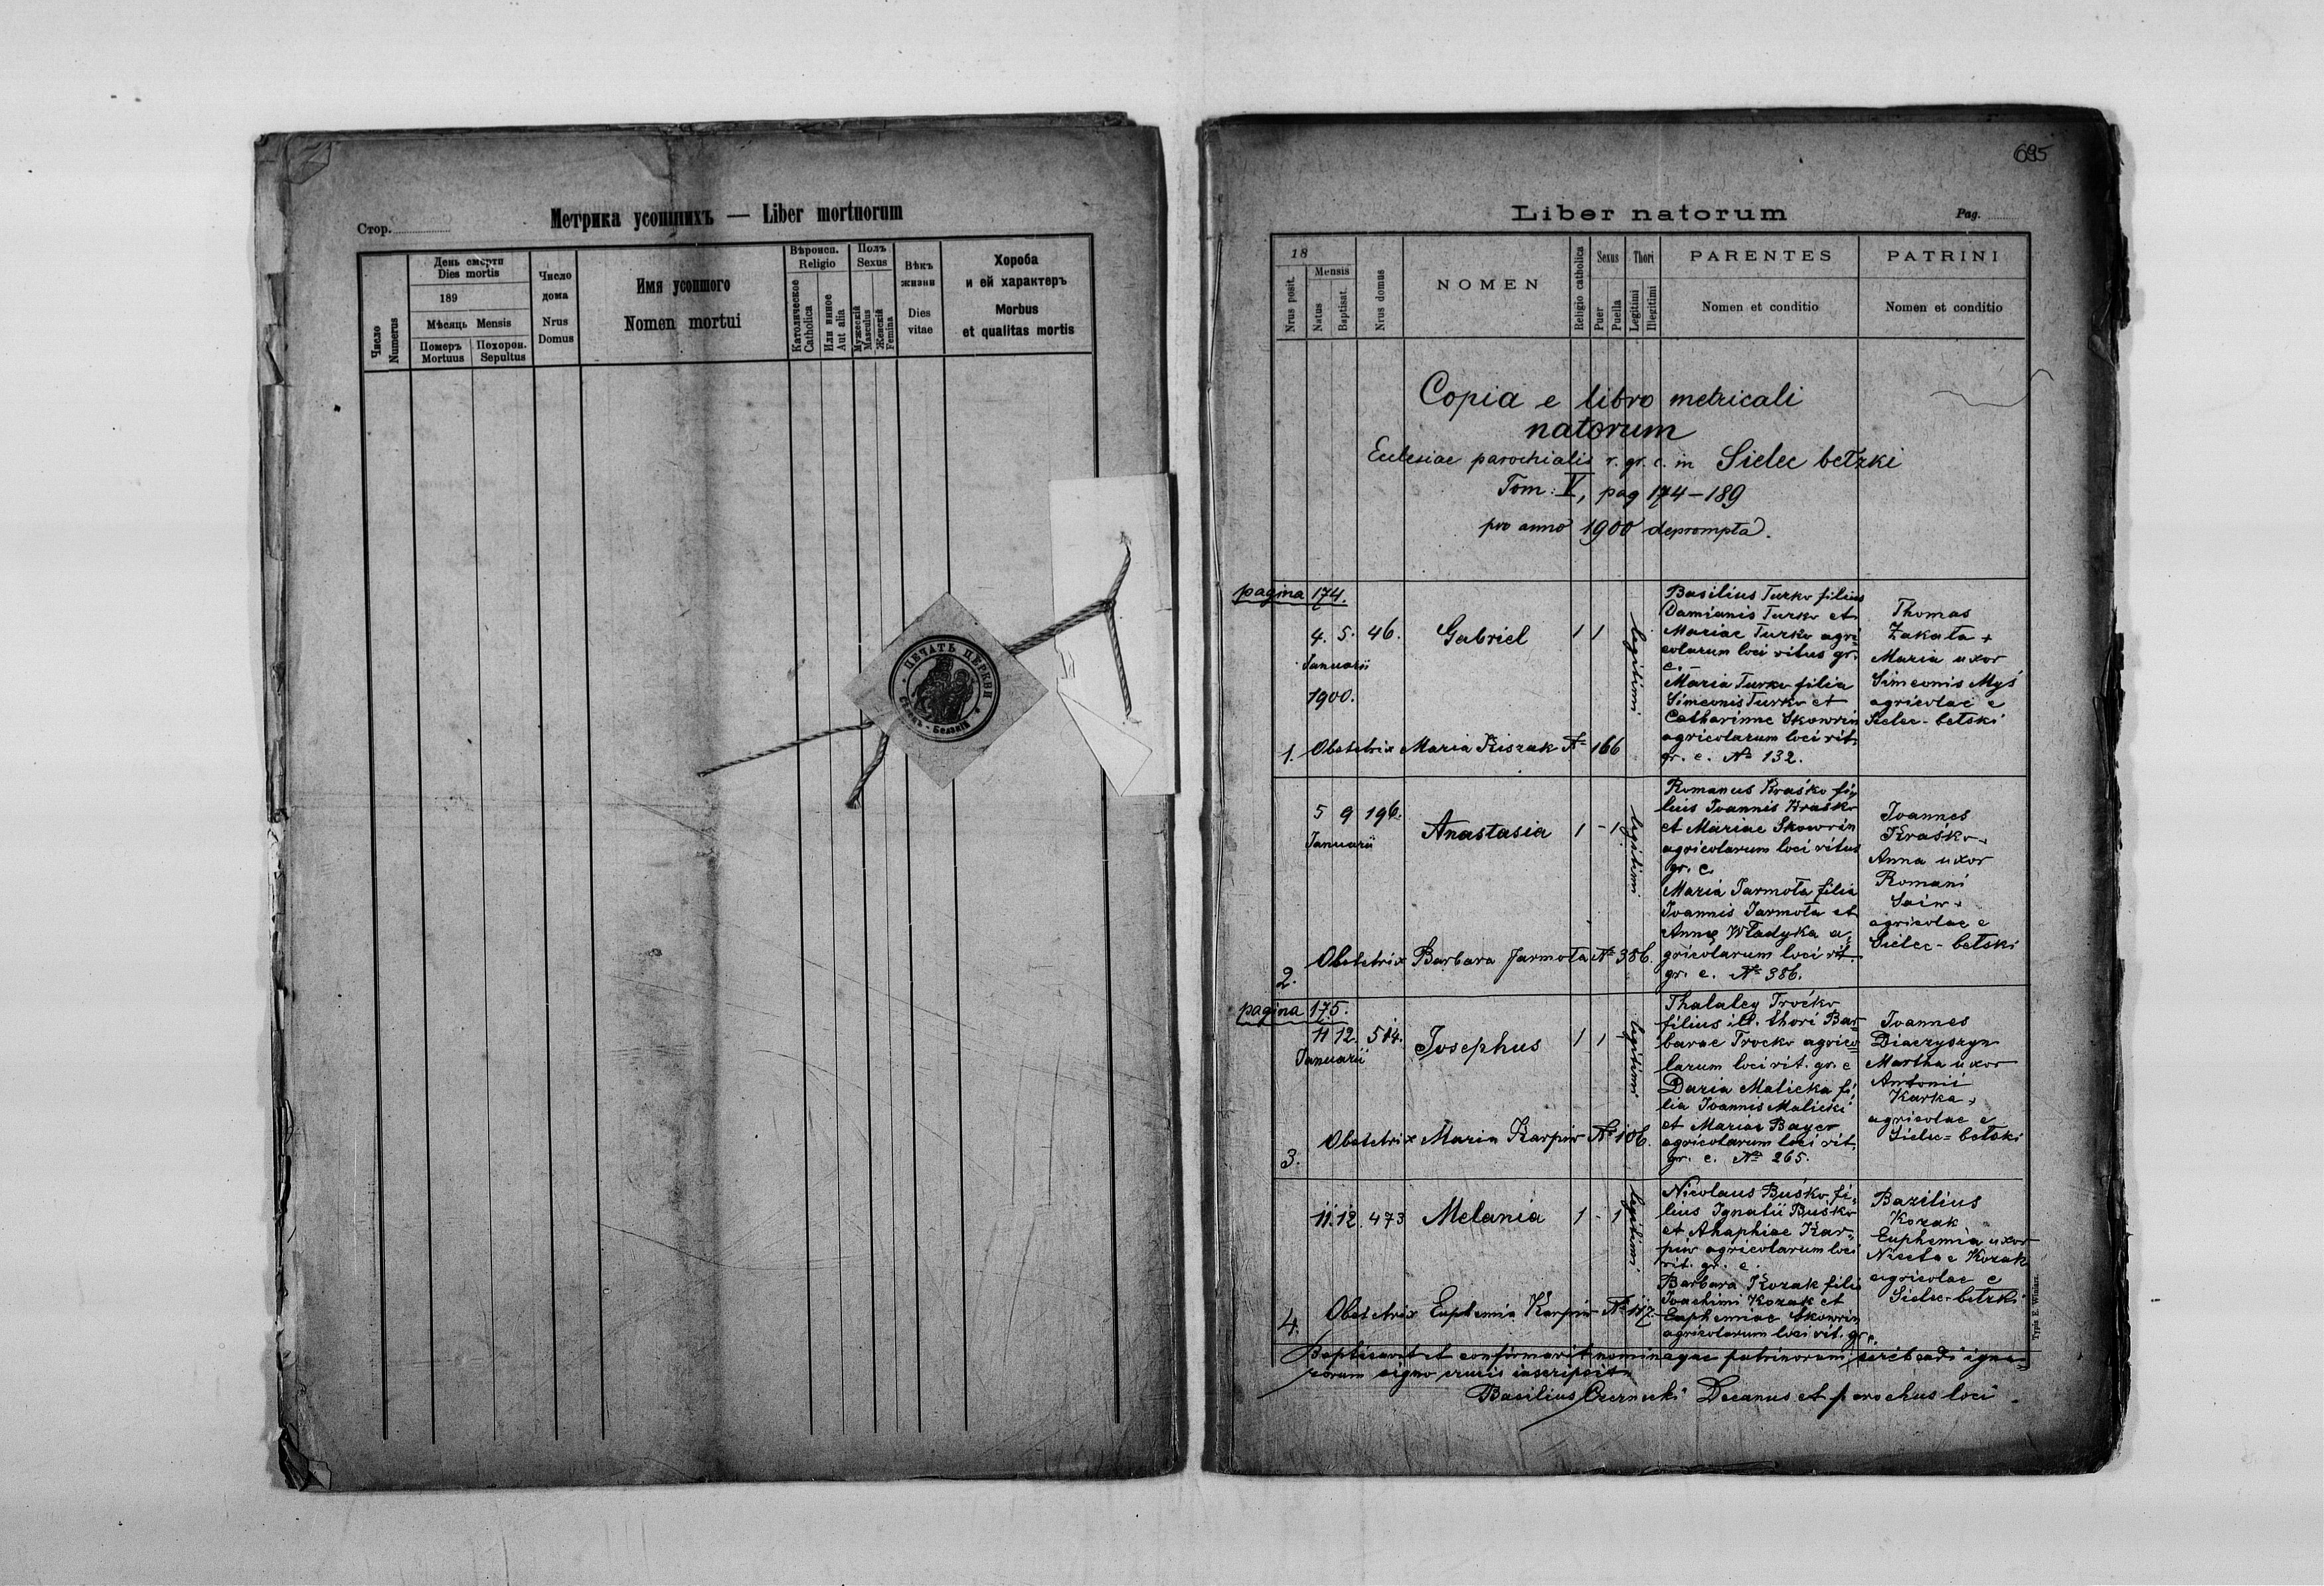 Стор.
Метрика усопшихъ — Liber mortuorum
Число
Numerus
День смерти
Dies mortis
189
Мѣсяць Mensis
Померъ
Mortuus
Похорон.
Sepultus
Число
дома
Nrus
Domus
Имя усопшого
Nomen mortui
Вѣроисп.
Religio
Католическое
Catholica
Или инное
Aut alia
Полъ
Sexus
Мужескій
Masculus
Женскій
Femina
Вѣкъ
жизни
Dies
vitae
Хороба
и ей характеръ
Morbus
et qualitas mortis
ПЕЧАТЬ ЦЕРКВИ
695
Liber natorum
Pag.
18
Nrus posit.
Mensis
Natus
Baptisat.
Nrus domus
NOMEN
Religio catholica
Sexus
Puer
Puella
Thori
Legitimi
Illegitimi
PARENTES
Nomen et conditio
PATRINI
Nomen et conditio
Copia e libro metricali
natorum
Ecclesiae parochialis r. gr. c. in Sielec bełzki
Tom: V, pag 174-189
pro anno 1900 deprompta.
pagina 174.
4. 5. 46. Gabriel 1 1
Januarii
1900.
legitimi
Basilius Turko filius
Damianis Turko et
Mariae Turko agri
colarum loci ritus gr.
c. -
Maria Turko filia
Simeonis Turko et
Catharinae Skowrin
agricolarum loci rit.
gr. c. No 132.
Thomas
Zakała +
Maria uxor
Simeonis Myś
agricolae e
Sielec-bełski
1. Obstetrix Maria Kiszak No 166
5 9 196. Anastasia 1 - 1
Januarii
legitimi
Romanus Kraśko fi
lius Joannis Kraśko
et Mariae Skowrin
agricolarum loci ritus
gr. c.
Maria Jarmoła filia
Joannis Jarmoła et
Annę Władyka a
gricolarum loci rit.
gr. c. No 386.
Joannes
Kraśko +
Anna uxor
Romani
Saiw +
agricolae e
Sielec-bełski
2. Obstetrix Barbara Jarmoła No 386.
pagina 175.
11 12. 514. Josephus 1 1 -
Januarii
legitimi
Thalaley Troćko
filius ill. thori Bar
barae Trocko agrico
larum loci rit. gr. c
Daria Malicka fi
lia Joannis Malicki
et Mariae Bayer
agricolarum loci rit.
gr. c. No 265.
Joannes
Diaczyszyn
Martha uxor
Antonii
Karka +
agricolae e
Sielec-bełski
3. Obstetrix Maria Karpiw No 106.
11. 12. 473 Melania 1 - 1
legitimi
Nicolaus Buśko fi
lius Ignatii Buśko
et Ahaphiae Kar
piw agricolarum loci
rit. gr. c.
Barbara Kozak filia
Joachimi Kozak et
Euphemiae Skowrin
agricolarum loci rit. gr c.
Bazilius
Kozak
Euphemia uxor
Nicetae Kozak
agricolae e
Sielec-bełzki
4. Obstetrix Euphemia Karpiw No 117.
Baptisavit et confirmavit nominaque patrinorum scribendi igna
rorum signo crucis inscripsit
Basilius Czernecki Decanus et parochus loci.
Typis E. Winiarz.